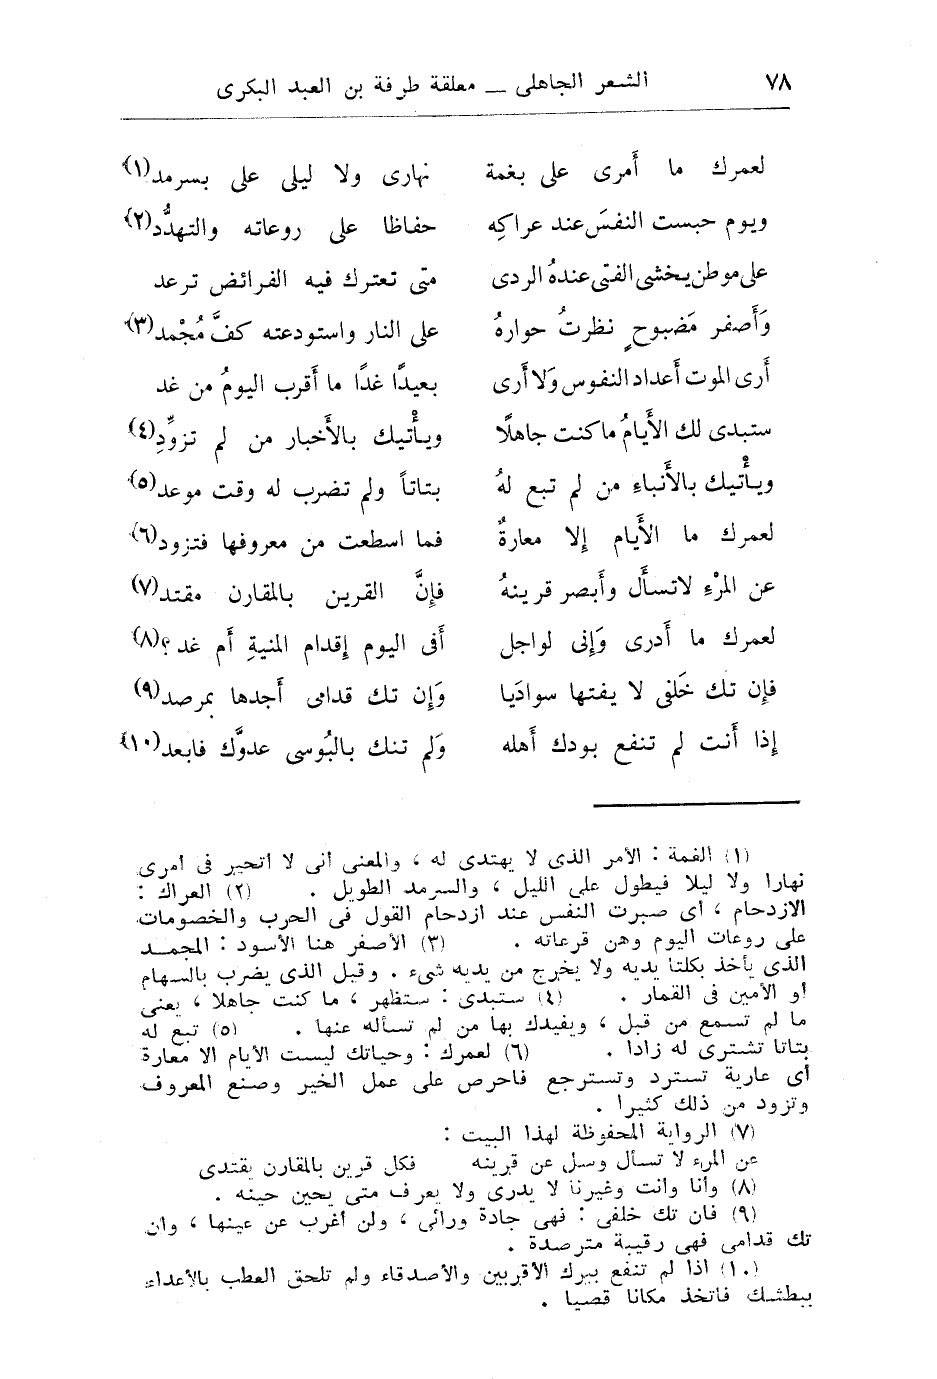 ٧٨ الشعر الجاهلى — معلقة طرفة بن العبد البكرى
لعمرك ما أَمرى على بغمة نهارى ولا ليلى على بسرمد(١)
ويوم حبست النفسَ عند عراكِه حفاظا على روعاته والتهدُّد(٢)
على موطن يخشى الفتى عندهُ الردى متى تعترك فيه الفرائض ترعد
وَأَصفر مَضبوحٍ نظرتُ حوارهُ على النار واستودعته كفَّ مُجْمد(٣)
أَرى الموت أَعداد النفوس وَلا أَرى بعيدًا غدًا ما أَقرب اليومُ من غد
ستبدى لك الأَيامُ ما كنت جاهلًا ويأْتيك بالأَخبار من لم تزوِّدِ(٤)
ويأْتيك بالأَنباءِ من لم تبع لهُ بتاتاً ولم تضرب له وقت موعد(٥)
لعمرك ما الأَيام إلا معارةٌ فما اسطعت من معروفها فتزود(٦)
عن المرْءِ لاتسأَل وأَبصر قرينهُ فإنَّ القرين بالمقارن مقتد(٧)
لعمرك ما أَدرى وَإِنى لواجل أَفى اليوم إقدام المنيةِ أَم غد؟(٨)
فإن تك خَلفى لا يفتها سوادَيا وَإِن تك قدامى أَجدها بمرصد(٩)
إذا أَنت لم تنفع بودك أَهله وَلم تنك بالبُوسى عدوَّك فابعد(١٠)
(١) الغمة : الأمر الذى لا يهتدى له ، والمعنى أنى لا أتحير فى أمرى
نهارا ولا ليلا فيطول على الليل ، والسرمد الطويل . (٢) العراك :
الازدحام ، أى صبرت النفس عند ازدحام القول فى الحرب والخصومات
على روعات اليوم وهن قرعاته . (٣) الأصفر هنا الأسود : المجمد
الذى يأخذ بكلتا يديه ولا يخرج من يديه شىء . وقيل الذى يضرب بالسهام
أو الأمين فى القمار . (٤) ستبدى : ستظهر ، ما كنت جاهلا ، يعنى
ما لم تسمع من قبل ، ويفيدك بها من لم تسأله عنها . (٥) تبع له
بتاتا تشترى له زادا . (٦) لعمرك : وحياتك ليست الأيام الا معارة
أى عارية تسترد وتسترجع فاحرص على عمل الخير وصنع المعروف
وتزود من ذلك كثيرا .
(٧) الرواية المحفوظة لهذا البيت :
عن المرء لا تسأل وسل عن قرينه فكل قرين بالمقارن يقتدى
(٨) وأنا وأنت وغيرنا لا يدرى ولا يعرف متى يحين حينه .
(٩) فان تك خلفى : فهى جادة ورائى ، ولن أغرب عن عينها ، وان
تك قدامى فهى رقيبة مترصدة .
(١٠) اذا لم تنفع ببرك الأقربين والأصدقاء ولم تلحق العطب بالأعداء
ببطشك فاتخذ مكانا قصيا .